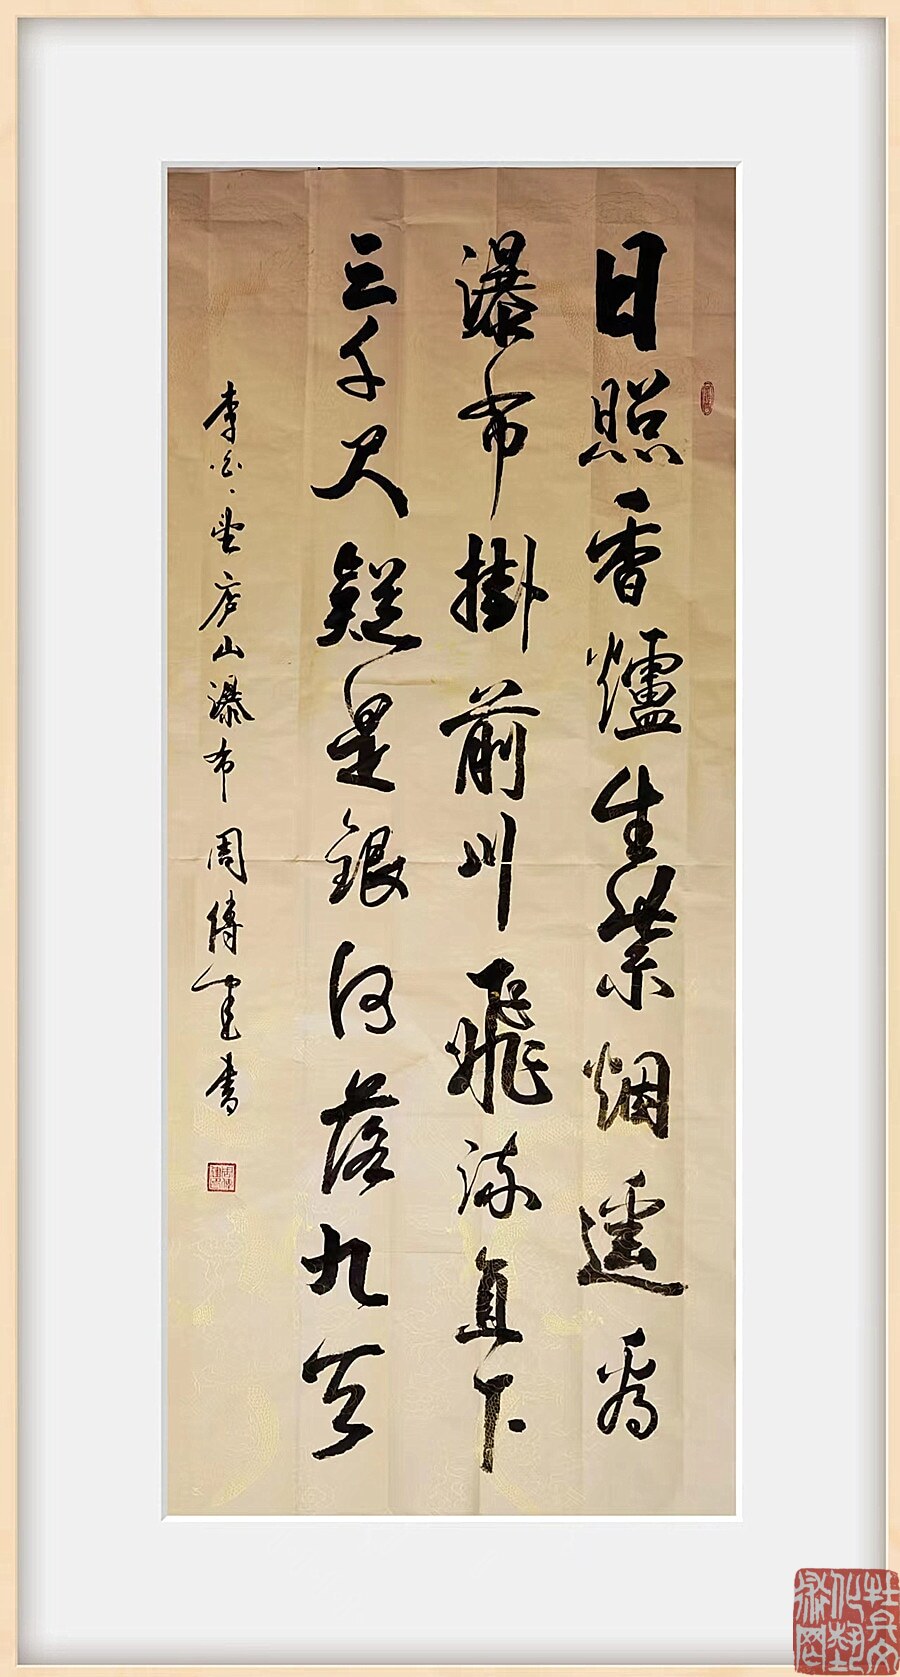 日照香爐生紫烟遥看
瀑布掛前川飛流直下
三千尺疑是銀河落九天
李白望庐山瀑布 周傳書